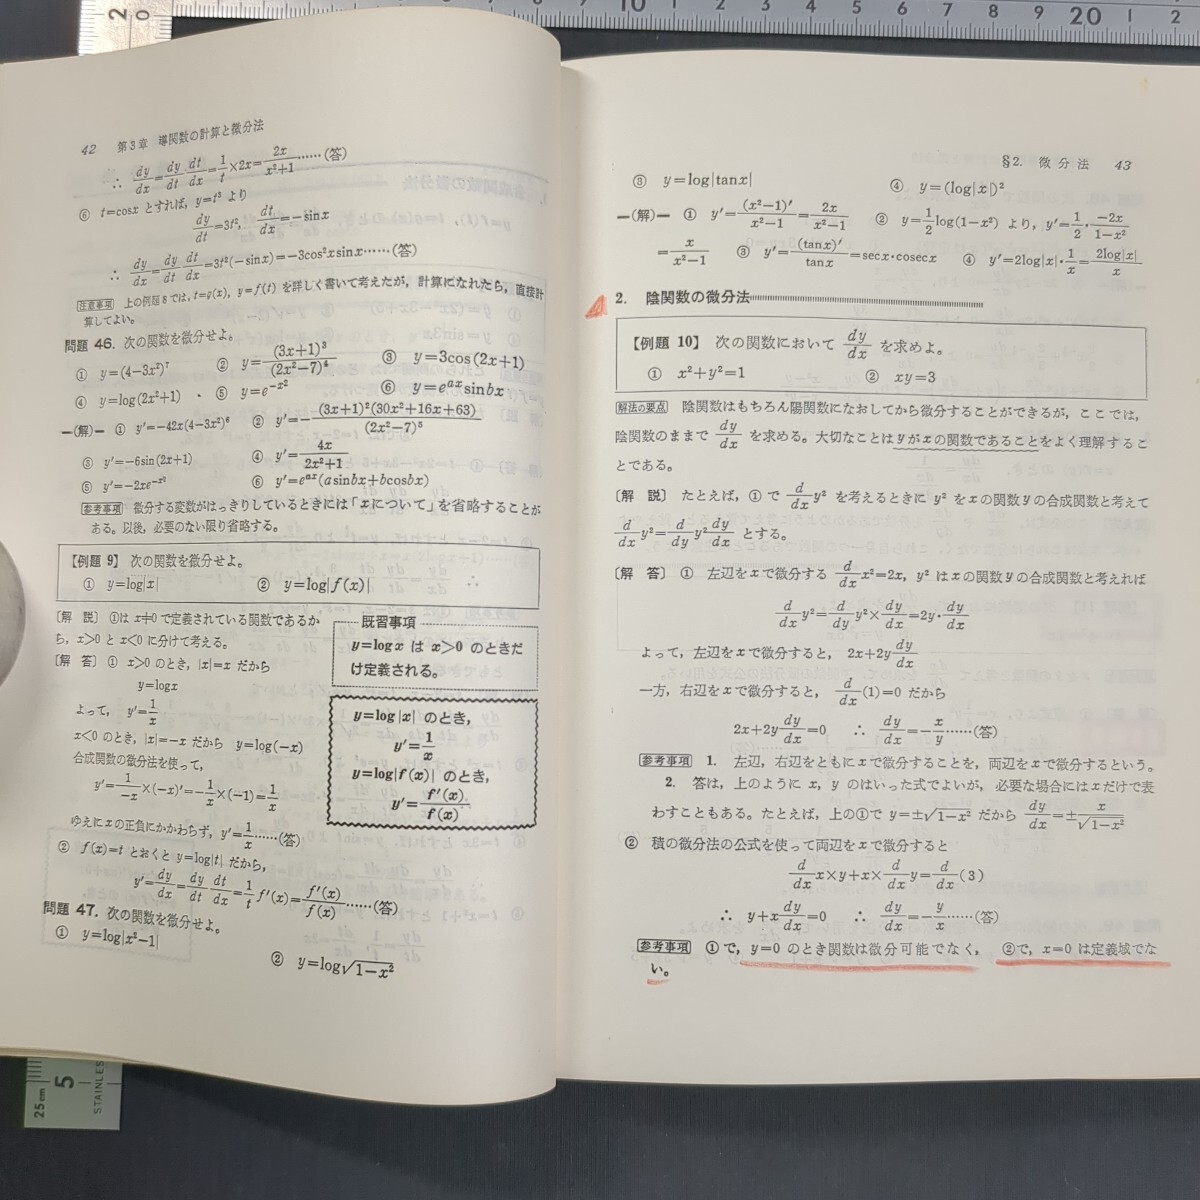 42 第3章 導関数の計算と微分法
∴ dy/dx=dy/dt dt/dx=1/t×2x=2x/x²+1……(答)
⑥ t=cosx とすれば, y=t³ より
dy/dt=3t², dt/dx=-sinx
∴ dy/dx=dy/dt dt/dx=3t²(-sinx)=-3cos²xsinx……(答)
注意事項 上の例題8では, t=g(x), y=f(t) を詳しく書いて考えたが, 計算になれたら, 直接計
算してよい。
問題 46. 次の関数を微分せよ。
① y=(4-3x²)⁷ ② y=(3x+1)³/(2x²-7)⁴ ③ y=3cos(2x+1)
④ y=log(2x²+1) ⑤ y=e^{-x²} ⑥ y=e^{ax}sinbx
—(解)— ① y'=-42x(4-3x²)⁶ ② y'=-(3x+1)²(30x²+16x+63)/(2x²-7)⁵
③ y'=-6sin(2x+1) ④ y'=4x/2x²+1
⑤ y'=-2xe^{-x²} ⑥ y'=e^{ax}(asinbx+bcosbx)
参考事項 微分する変数がはっきりしているときには「xについて」を省略することが
ある。以後, 必要のない限り省略する。
【例題 9】 次の関数を微分せよ。
① y=log|x| ② y=log|f(x)|
〔解 説〕 ①は x≠0 で定義されている関数であるか
ら, x>0 と x<0 に分けて考える。
〔解 答〕 ① x>0 のとき, |x|=x だから
y=logx
よって, y'=1/x
x<0 のとき, |x|=-x だから y=log(-x)
合成関数の微分法を使って,
y'=1/-x×(-x)'=-1/x×(-1)=1/x
ゆえにxの正負にかかわらず, y'=1/x……(答)
② f(x)=t とおくと y=log|t| だから,
y'=dy/dx=dy/dt dt/dx=1/t f'(x)=f'(x)/f(x)……(答)
既習事項
y=logx は x>0 のときだ
け定義される。
y=log|x| のとき,
y'=1/x
y=log|f(x)| のとき,
y'=f'(x)/f(x)
問題 47. 次の関数を微分せよ。
① y=log|x²-1|
② y=log√1-x²
§2. 微分法 43
③ y=log|tanx| ④ y=(log|x|)²
—(解)— ① y'=(x²-1)'/x²-1=2x/x²-1 ② y=1/2log(1-x²) より, y'=1/2・-2x/1-x²
=x/x²-1 ③ y'=(tanx)'/tanx=secx・cosecx ④ y'=2log|x|・1/x=2log|x|/x
2. 陰関数の微分法
【例題 10】 次の関数において dy/dx を求めよ。
① x²+y²=1 ② xy=3
解法の要点 陰関数はもちろん陽関数になおしてから微分することができるが, ここでは,
陰関数のままで dy/dx を求める。大切なことはyがxの関数であることをよく理解するこ
とである。
〔解 説〕 たとえば, ①で d/dx y² を考えるときに y² をxの関数yの合成関数と考えて
d/dx y²=d/dy y² dy/dx とする。
〔解 答〕 ① 左辺をxで微分する d/dx x²=2x, y² はxの関数yの合成関数と考えれば
d/dx y²=d/dy y²×dy/dx=2y・dy/dx
よって, 左辺をxで微分すると, 2x+2y dy/dx
一方, 右辺をxで微分すると, d/dx (1)=0 だから
2x+2y dy/dx=0 ∴ dy/dx=-x/y……(答)
参考事項 1. 左辺, 右辺をともにxで微分することを, 両辺をxで微分するという。
2. 答は, 上のように x, y のはいった式でよいが, 必要な場合にはxだけで表
わすこともある。たとえば, 上の①で y=±√1-x² だから dy/dx=±x/√1-x²
② 積の微分法の公式を使って両辺をxで微分すると
d/dx x×y+x×d/dx y=d/dx (3)
∴ y+x dy/dx=0 ∴ dy/dx=-y/x……(答)
参考事項 ①で, y=0 のとき関数は微分可能でなく, ②で, x=0 は定義域でな
い。
5 6 7 8 9 20 1 2
10
2 0
25cm 5 STAINLES